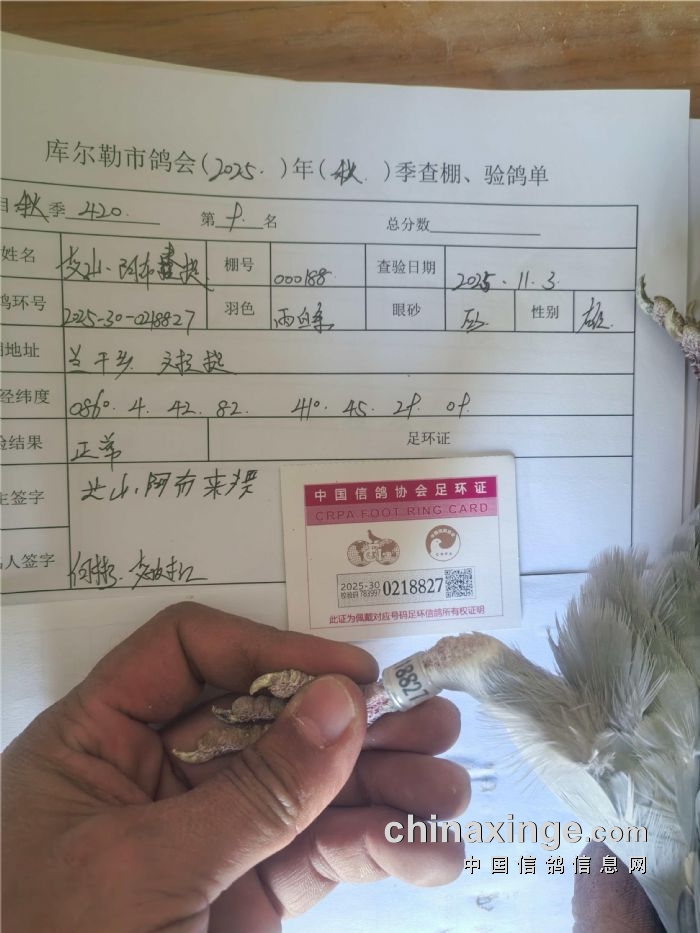 库尔勒市鸽会(2025.)年(秋)季查棚、验鸽单
目 秋 季 420. 第 9 名 总分数
姓名 棚号 000188 查验日期 2025.11.3
鸽环号 2025-30-0218827 羽色 雨白条 眼砂 性别 雄
地址 兰干乡
经纬度 086°.4.42.82 41°.45.29.09
验结果 正常 足环证
主签字
人签字
中国信鸽协会足环证
CRPA FOOT RING CARD
2025-30 0218827
校验码 783997
此证为佩戴对应号码足环信鸽所有权证明
18827
chinaxinge.com
中国信鸽信息网